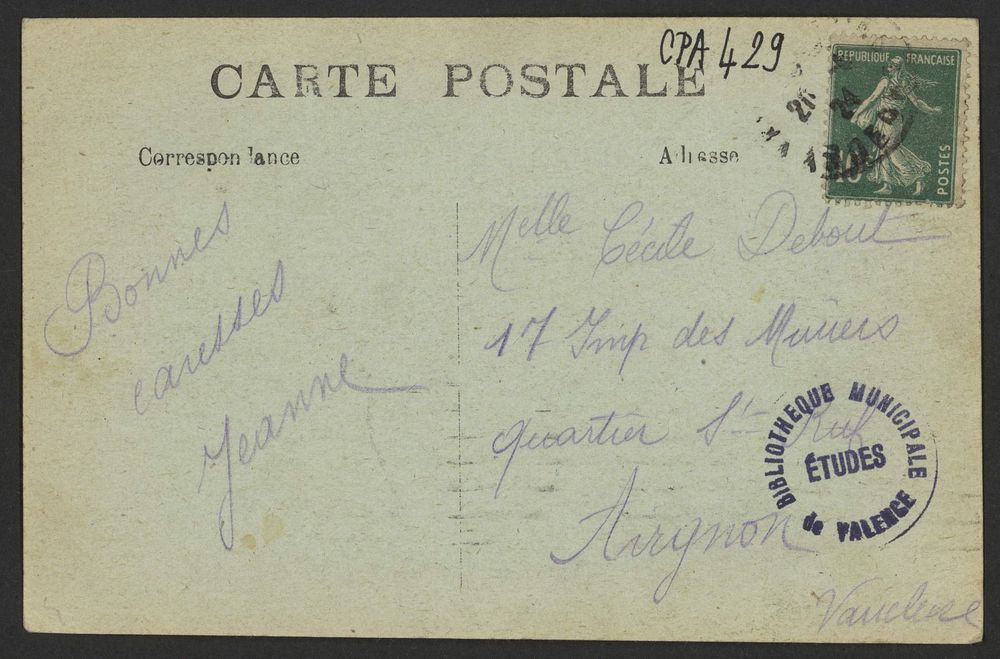 CPA 429
CARTE POSTALE
RÉPUBLIQUE FRANÇAISE
POSTES
10
Correspondance
Adresse
Bonnes
caresses
Jeanne
Melle Cécile Debout
17 Imp des Mûriers
quartier St Ruf
Avignon
Vaucluse
BIBLIOTHEQUE MUNICIPALE
ÉTUDES
de VALENCE